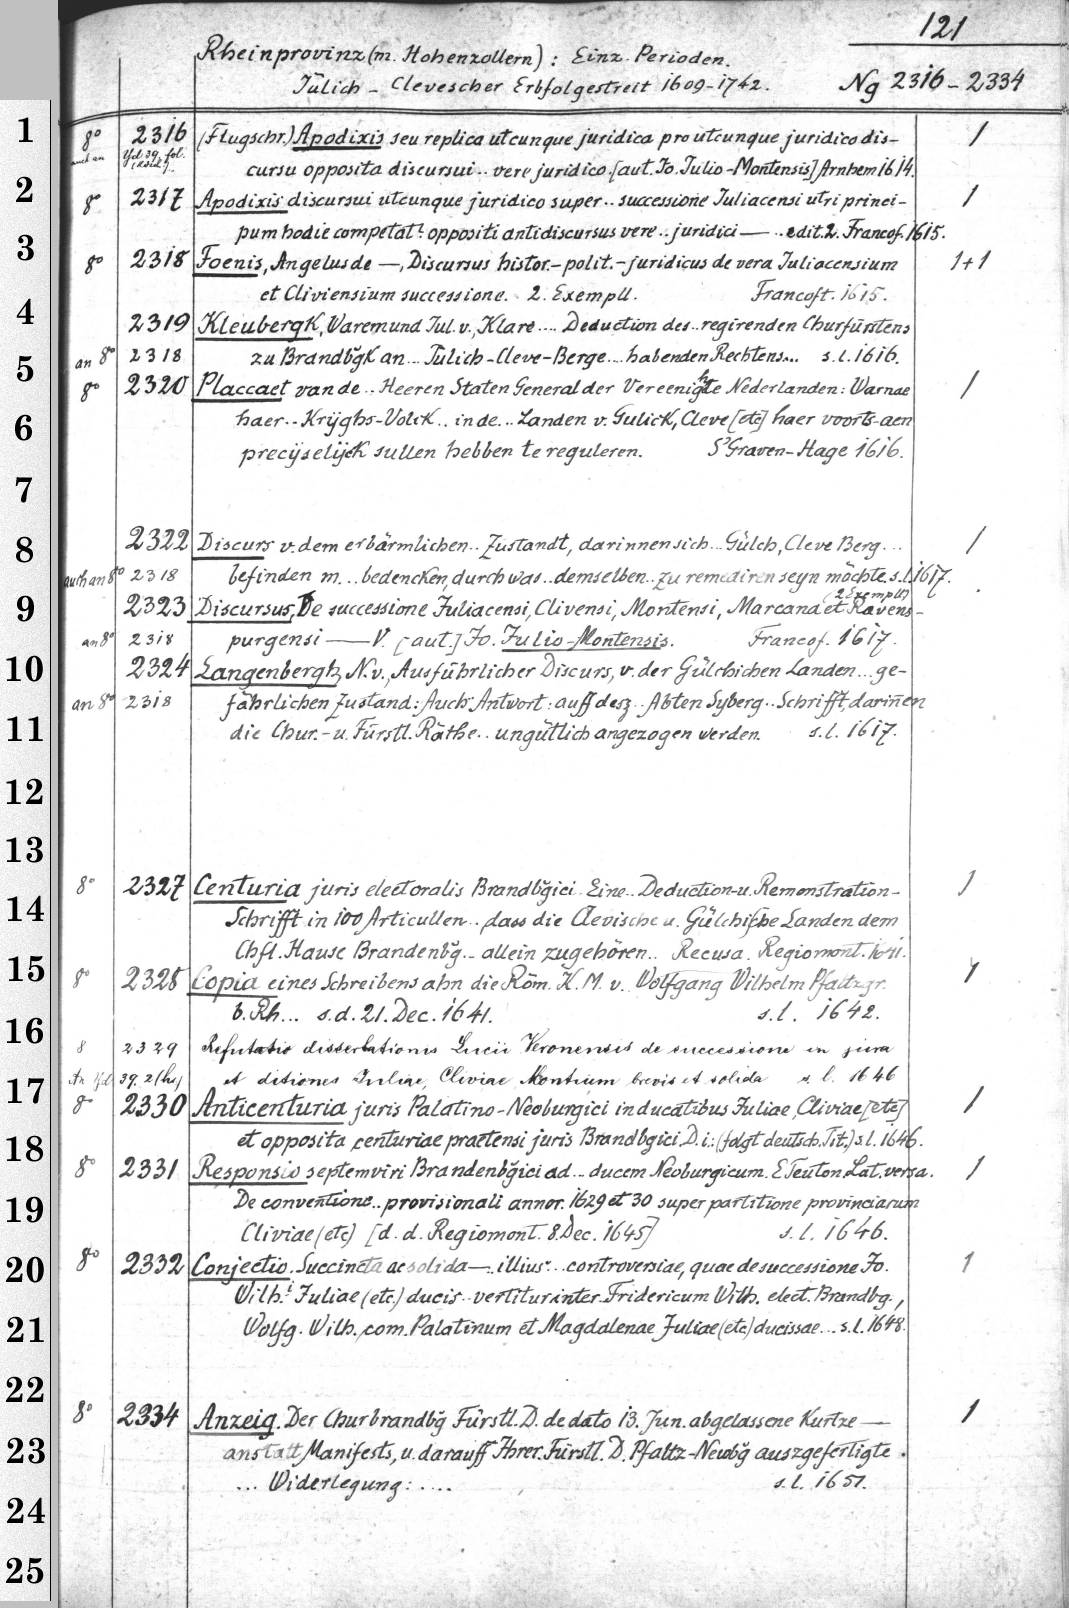 121
Rheinprovinz (m. Hohenzollern) : Einz. Perioden.
Jülich - Clevescher Erbfolgestreit 1609-1742. Ng 2316-2334
1 8° 2316 (Flugschr.) Apodixis seu replica utcunque juridica pro utcunque juridico dis- 1
auch an Yd 39 fol.
cursu opposita discursui .. vere juridico. [aut. Jo. Julio-Montensis] Arnhem 1614.
2 8° 2317 Apodixis discursui utcunque juridico super .. successione Juliacensi utri princi- 1
pum hodie competat: oppositi antidiscursus vere .. juridici — .. edit. 2. Francof. 1615.
3 8° 2318 Foenis, Angelus de —, Discursus histor.-polit.-juridicus de vera Juliacensium 1+1
et Cliviensium successione. 2. Exempll. Francoft. 1615.
4 2319 Kleubergk, Waremund Jul. v., Klare .... Deduction des .. regirenden Churfürstens
5 an 8° 2318 zu Brandbğk an ... Jülich-Cleve-Berge .. habenden Rechtens... s.l. 1616.
8° 2320 Placcaet van de .. Heeren Staten General der Vereenighte Nederlanden: Warnae 1
6 haer .. Krijghs-Volck .. in de .. Landen v. Gulick, Cleve [etc] haer voorts-aen
precijselijck sullen hebben te reguleren. S'Graven-Hage 1616.
7
8 2322 Discurs v. dem erbärmlichen .. Zustandt, darinnen sich ... Gülch, Cleve Berg ... 1
auch an 8° 2318 befinden m... bedencken, durch was .. demselben .. zu remediren seyn möchte. s.l. 1617.
(2 Exempll)
9 2323 Discursus, De successione Juliacensi, Clivensi, Montensi, Marcana et Ravens-
an 8° 2318 purgensi — V. [aut.] Jo. Julio-Montensis. Francof. 1617.
10 2324 Langenbergk, N. v., Ausführlicher Discurs, v. der Gülchichen Landen ... ge-
an 8° 2318 fährlichen Zustand: Auch Antwort: auff desz .. Abten Syberg .. Schrifft, darinēn
11 die Chur.- u. Fürstl. Räthe .. ungütlich angezogen werden. s.l. 1617.
12
13
8° 2327 Centuria juris electoralis Brandbğici. Eine .. Deduction- u. Remonstration- 1
14 Schrifft in 100 Articullen .. dass die Clevische u. Gülchische Landen dem
Chfl. Hause Brandenbğ. .. allein zugehören .. Recusa. Regiomont. 1641.
15 8° 2328 Copia eines Schreibens ahn die Röm. K. M. v. Wolfgang Wilhelm Pfaltzgr. 1
b. Rh... s.d. 21. Dec. 1641. s.l. 1642.
16 8 2329 Refutatio dissertationis Lucii Veronensis de successione in jura
39. 2 et ditiones Juliae, Cliviae Montium brevis et solida s. l. 1646
17 8° 2330 Anticenturia juris Palatino-Neoburgici in ducatibus Juliae, Cliviae [etc] 1
18 et opposita centuriae praetensi juris Brandbgici. D. i.: (folgt deutsch. Tit.) s.l. 1646.
8° 2331 Responsio septemviri Brandenbğici ad .. ducem Neoburgicum. E Teuton. Lat. versa. 1
19 De conventione .. provisionali annor. 1629 et 30 super partitione provinciarum
Cliviae (etc) [d. d. Regiomont. 8. Dec. 1645] s.l. 1646.
20 8° 2332 Conjectio. Succincta ac solida —. illius ... controversiae, quae de successione Jo. 1
Wilh.i Juliae (etc.) ducis .. vertitur inter Fridericum Wilh. elect. Brandbg.,
21 Wolfg. Wilh. com. Palatinum et Magdalenae Juliae (etc) ducissae ... s.l. 1648.
22
8° 2334 Anzeig. Der Churbrandbğ Fürstl. D. de dato 13. Jun. abgelassene Kurtze — 1
23 anstatt Manifests, u. darauff Ihrer Fürstl. D. Pfaltz-Neubğ auszgefertigte
... Widerlegung: .... s.l. 1651.
24
25